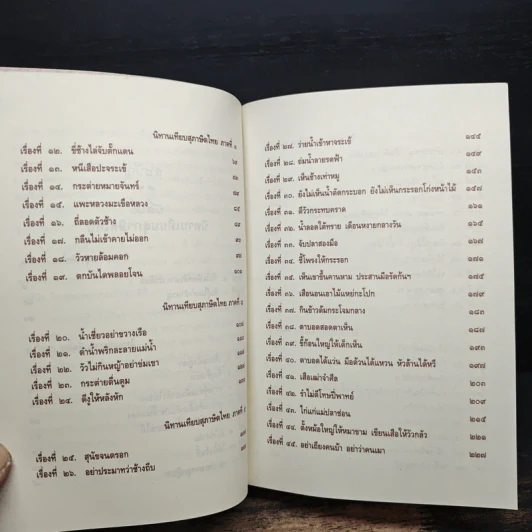 นิทานเทียบสุภาษิตไทย ภาค
เรื่องที่ ๑๒. ขี่ช้างไล่จับตั๊กแตน
เรื่องที่ ๑๓. หนีเสือปะจระเข้
เรื่องที่ ๑๔. กระต่ายหมายจันทร์
เรื่องที่ ๑๕. แพะหลวงมะเขือหลวง
เรื่องที่ ๑๖. ถี่ลอดตัวช้าง
เรื่องที่ ๑๗. กลืนไม่เข้าคายไม่ออก
เรื่องที่ ๑๘. วัวหายล้อมคอก
เรื่องที่ ๑๙. ตกบันไดพลอยโจน
นิทานเทียบสุภาษิตไทย ภาค
เรื่องที่ ๒๐. น้ำเชี่ยวอย่าขวางเรือ
เรื่องที่ ๒๑. ตำน้ำพริกละลายแม่น้ำ
เรื่องที่ ๒๒. วัวไม่กินหญ้าอย่าข่มเขา
เรื่องที่ ๒๓. กระต่ายตื่นตูม
เรื่องที่ ๒๔. ตีงูให้หลังหัก
นิทานเทียบสุภาษิตไทย ภาค
เรื่องที่ ๒๕. สุนัขจนตรอก
เรื่องที่ ๒๖. อย่าประมาทว่าช้างถีบ
เรื่องที่ ๒๗. ว่ายน้ำเข้าหาจระเข้ ๑๔๕
เรื่องที่ ๒๘. ถ่มน้ำลายรดฟ้า ๑๔๙
เรื่องที่ ๒๙. เห็นช้างเท่าหมู ๑๕๓
เรื่องที่ ๓๐. ยังไม่เห็นน้ำตัดกระบอก ยังไม่เห็นกระรอกโก่งหน้าไม้ ๑๕๗
เรื่องที่ ๓๑. ตีวัวกระทบคราด ๑๖๑
เรื่องที่ ๓๒. น้ำลอดใต้ทราย เดือนหงายกลางวัน
เรื่องที่ ๓๓. จับปลาสองมือ ๑๖๗
เรื่องที่ ๓๔. ชี้โพรงให้กระรอก ๑๗๑
เรื่องที่ ๓๕. เห็นเขาขึ้นคานหาม ประสานมือรัดก้นฯ ๑๗๕
เรื่องที่ ๓๖. เสือนอนเอาไม้แหย่ ๑๗๙
เรื่องที่ ๓๗. กินข้าวต้มกระโจมกลาง ๑๘๓
เรื่องที่ ๓๘. ตาบอดสอดตาเห็น ๑๘๗
เรื่องที่ ๓๙. ยื่ ก้อนใหญ่ให้เด็กเห็น ๑๙๓
เรื่องที่ ๔๐. ตาบอดได้แว่น มือด้วนได้แหวน หัวล้านได้หวี ๑๙๗
เรื่องที่ ๔๑. เสือเฒ่าจำศีล ๒๐๓
เรื่องที่ ๔๒. รำไม่ดีโทษปี่พาทย์ ๒๐๙
เรื่องที่ ๔๓. ไก่แก่แม่ปลาช่อน ๒๑๕
เรื่องที่ ๔๔. ตั้งหม้อใหญ่ให้หมาขาม เขียนเสือให้วัวกลัว ๒๒๑
เรื่องที่ ๔๕. อย่าเถียงคนบ้า อย่าว่าคนเมา ๒๒๗